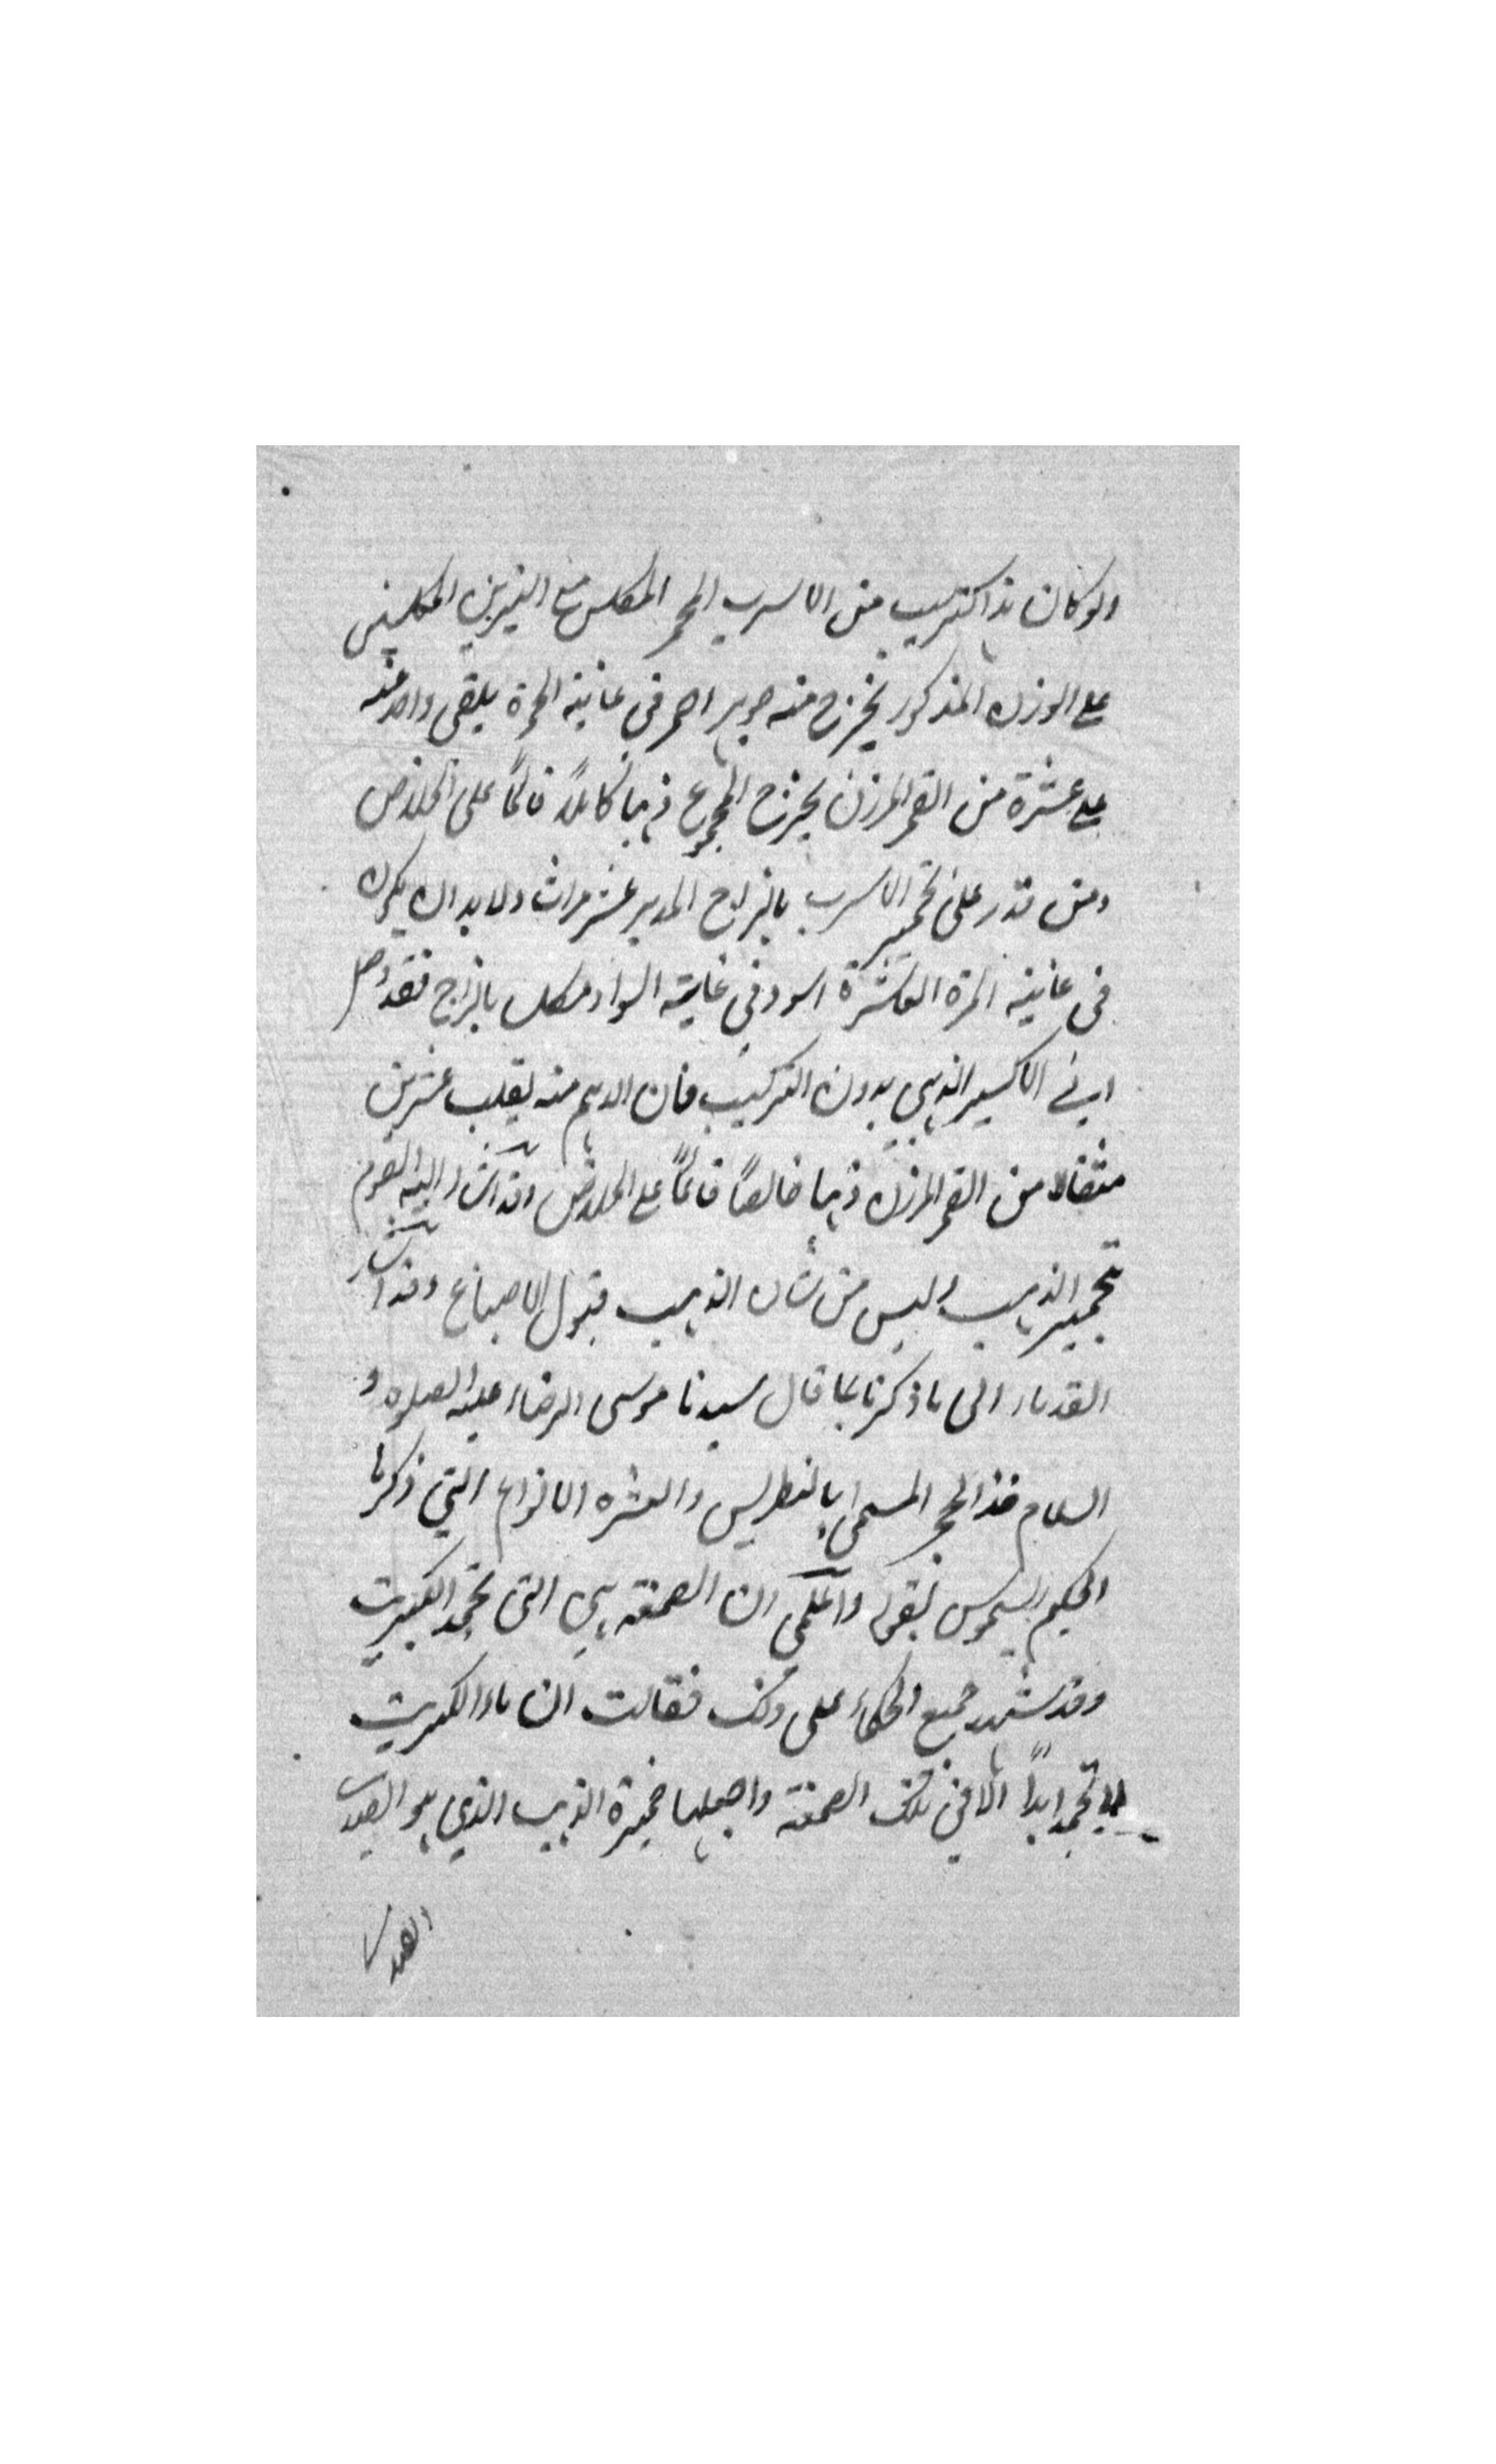 ولو كان هذا كتركيب من الاسرب المحمر المكلس مع النيرين المكلسين
على الوزن المذكور يخرج منه جوهر احمر في غاية الحمرة يلقى واحد منه
على عشرة من القمر المرزن يخرج المجموع ذهبا كاملاً قائماً على الخلاص
ومن قدر على تحمير الاسرب بالزاج المدبر عشر مرات ولا بد ان يكون
في غاية المرة العاشرة اسود في غاية السواد مكلس بالزاج فقد وصل
الى الاكسير الذهبي بدون التركيب فان الدرهم منه يقلب عشرين
مثقالا من القمر المرزن ذهبا خالصاً قائماً على الخلاص وقد اشار اليه القوم
بتحمير الذهب وليس من شان الذهب قبول الاصباغ وقد اشار
القدماء الى ما ذكرنا كما قال سيدنا موسى الرضاء عليه الصلوه و
السلام خذ الحجر المسمى بالنطريس والعشره الانواع التي ذكرها
الحكيم بقوله واعلمى ان الصمغة هي التى تجمد الكبريت
وقد شهد جميع الحكماء على ذلك فقالت ان ماء الكبريت
لا تجمد ابداً الا في تلك الصمغة واجعلها خميرة الذهب الذي هو